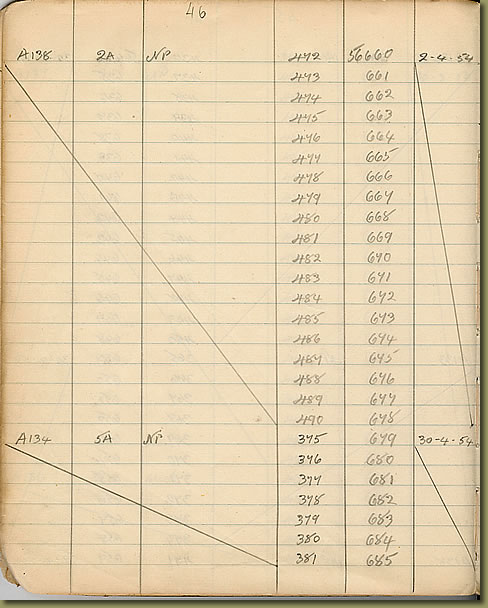 46
A138 2A NP 472 56660 2-4-54
473 661
474 662
475 663
476 664
477 665
478 666
479 667
480 668
481 669
482 670
483 671
484 672
485 673
486 674
487 675
488 676
489 677
490 678
A134 5A NP 375 679 30-4-54
376 680
377 681
378 682
379 683
380 684
381 685